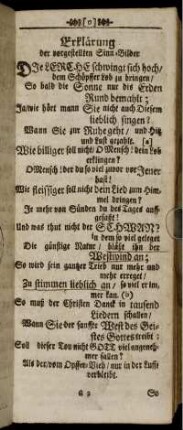 [ 11 ]
Erklärung
der vorgestellten Sinn-Bilder
DJe LERCHE schwingt sich hoch/
dem Schöpffer Lob zu bringen/
So bald die Sonne nur die Erden
Rund bemahlt;
Ja/wie hört man Sie nicht auch Diesem
lieblich singen?
Wann Sie zur Ruhe geht/ und Hitz
und Lust
Wie billiger soll nicht/ O Mensch! dein Lob
erklingen?
O Mensch! der du so viel zuvor vor Jener
hast!
Wie fleissiger soll nicht dein Lied zum Him-
mel dringen?
Je mehr von Sünden du des Tages auff-
gefaßt!
Und was thut nicht der SCHWAN?
in dem so viel geleget
Die günstige Natur/ bläßt ihn der
Westwind an;
So wird sein gantzer Trieb nur mehr und
mehr erreget/
Zu stimmen lieblich an/ so viel er im-
mer kan.
So muß der Christen Danck in tausend
Liedern schallen/
Wann Sie der sanffte West des Gei-
stes Gottes treibt:
Soll dieser Ton nicht GOTT viel angeneh-
mer fallen?
Als der/vom Opffer-Vieh/ nur in der Lufft
verbleibt.
So